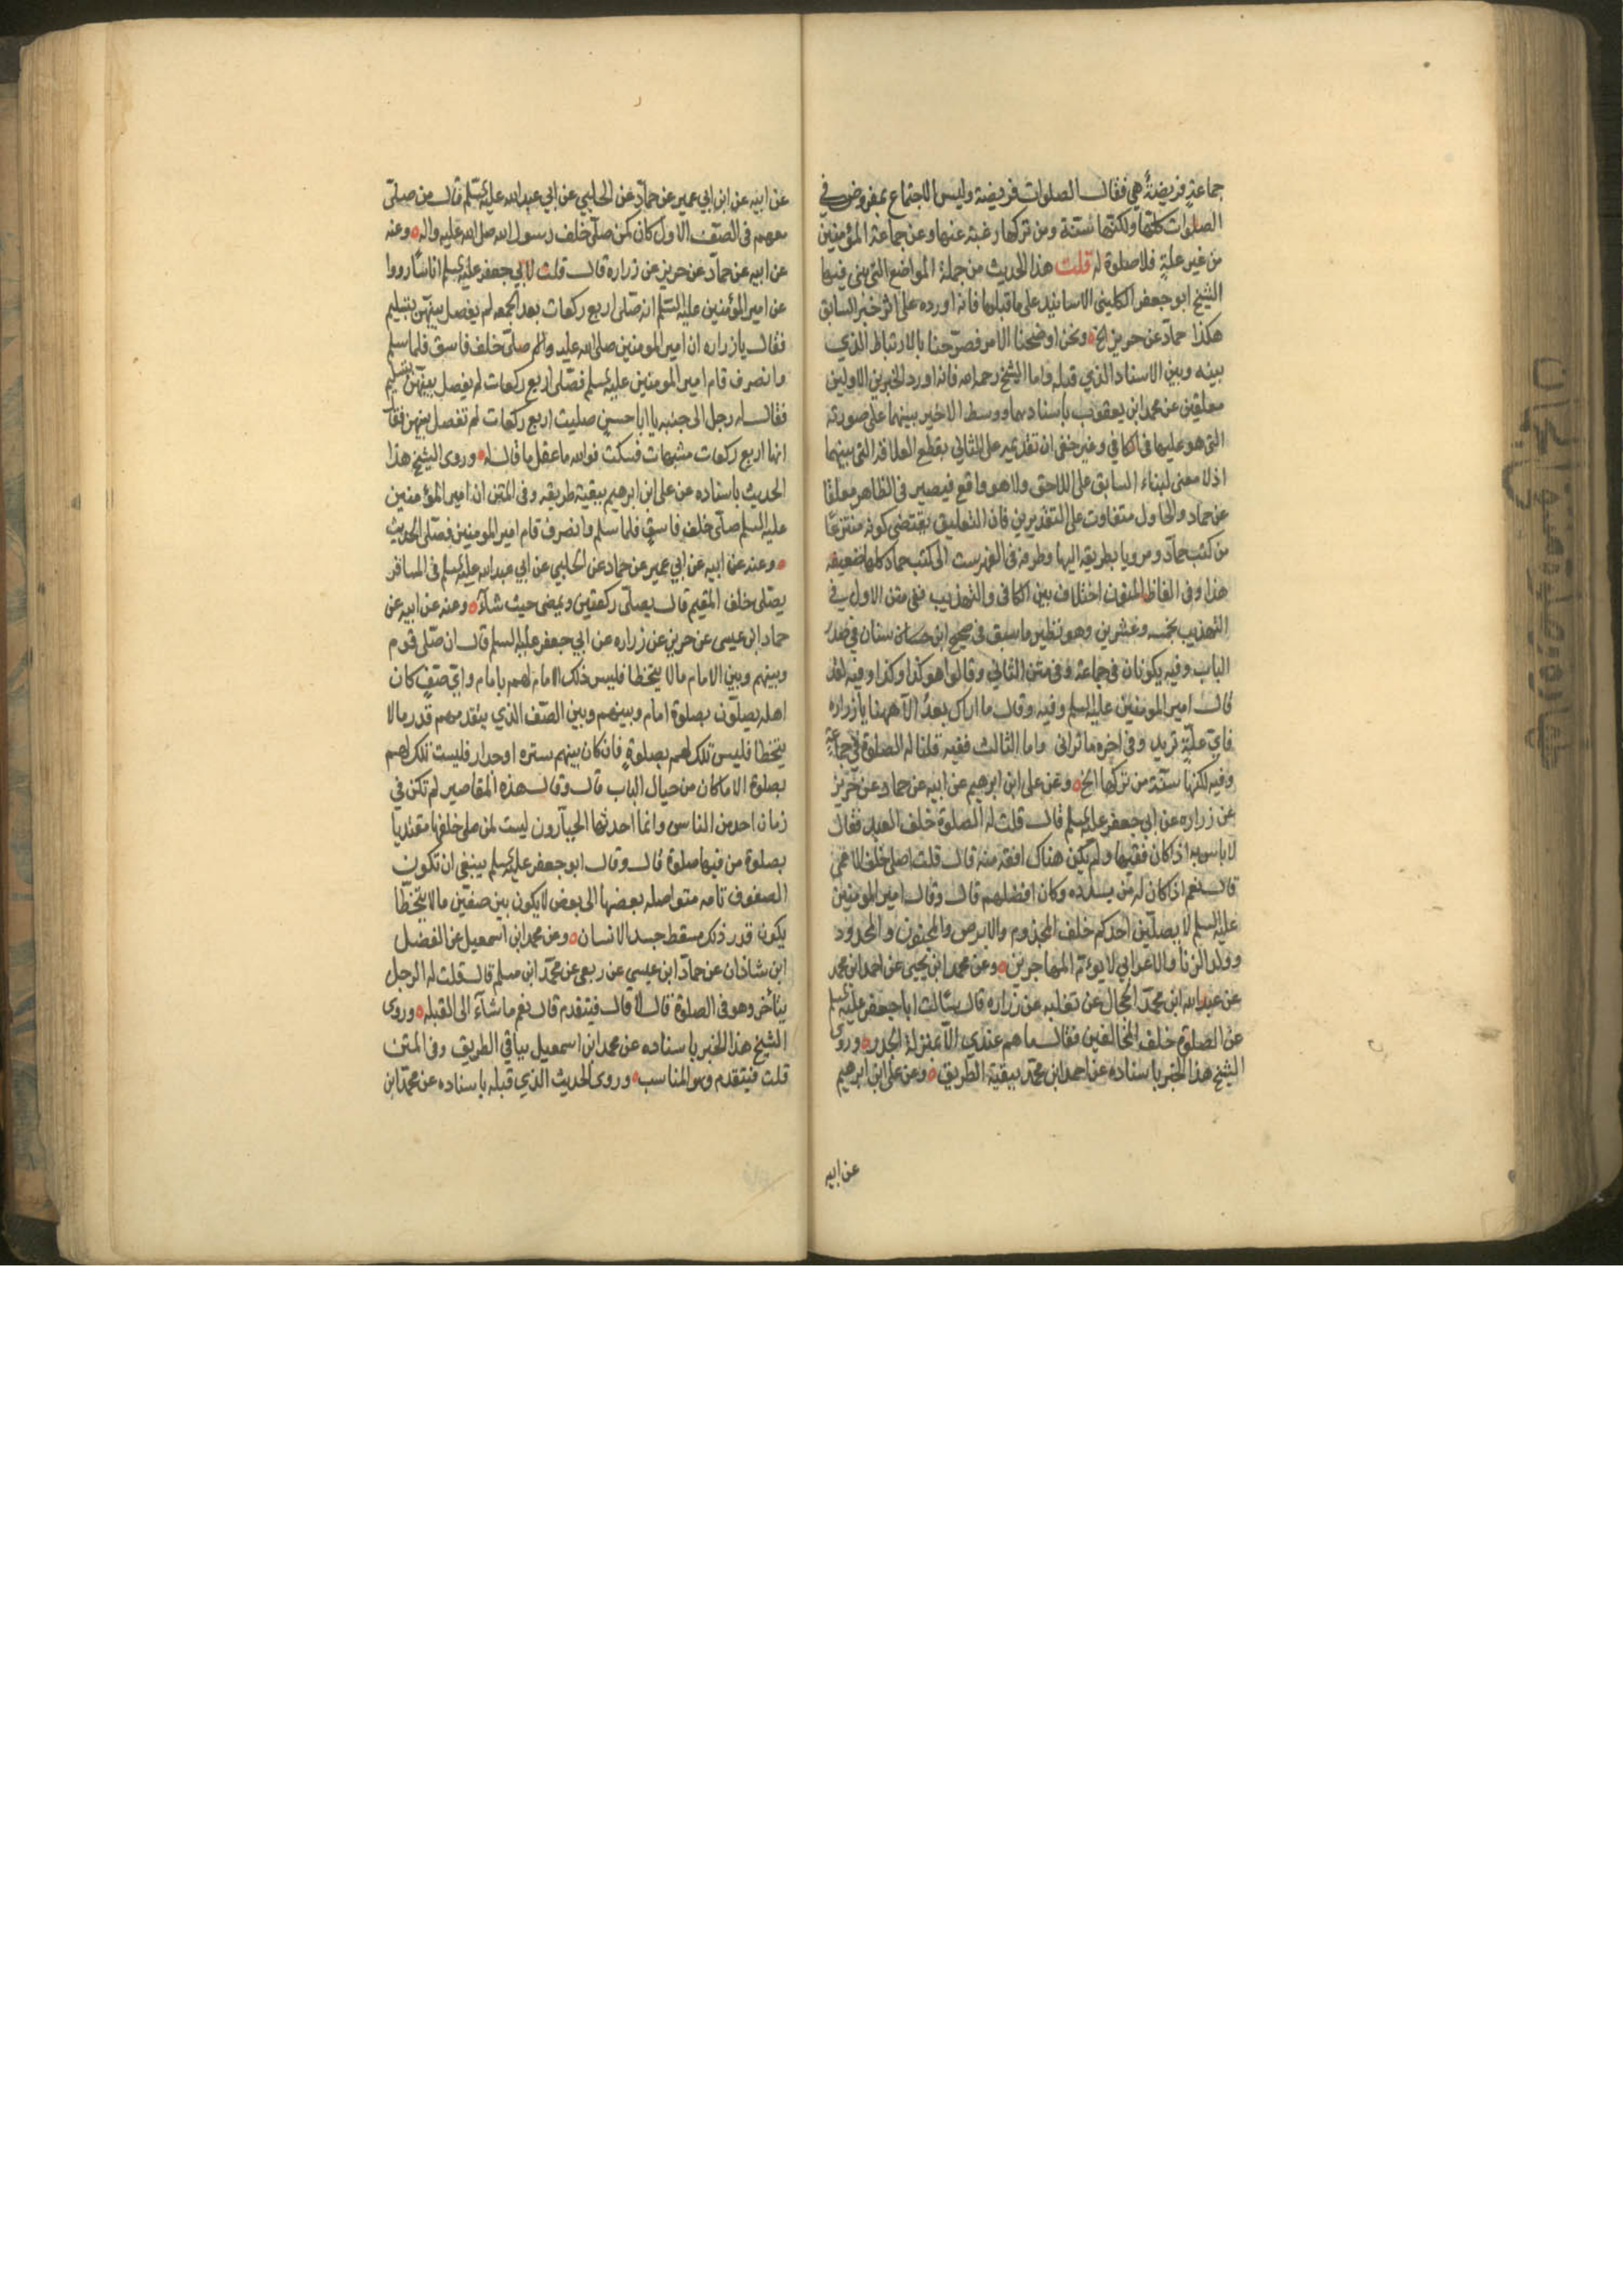 جماعة فريضة هي فقال الصلوات فريضة وليس الاجتماع بمفروض في
الصلوات كلها ولكنها سنة ومن تركها رغبة عنها وعن جماعة المؤمنين
من غير علة فلا صلوة له قلت هذا الحديث من جملة المواضع التي بنى فيها
الشيخ ابو جعفر الكليني الاسانيد على ما قبلها فانه اورده على اثر خبر السابق
هكذا حماد عن حريز الخ ونحن اوضحنا الامر فصرحنا بالارتباط الذي
بينه وبين الاسناد الذي قبله واما الشيخ رحمه الله فانه اورد الخبرين الاولين
معلقين عن محمد ابن يعقوب باسنادهما ووسط الاخير بينهما على صورته
التي هو عليها في الكافي وغير خفي ان تقديمه على الثاني يقطع العلاقة التي بينهما
اذ لا معنى لبناء السابق على اللاحق ولا هو واقع فيصير في الظاهر معلقا
عن حماد والحاول متفاوت على التقديرين فان التعليق يقتضي كونه منتزعا
من كتب حماد ومرويا بطريقه اليها وطرقه في الفهرست الى كتب حماد كلها ضعيفه
هذا وفي الفاظ المتون اختلاف بين الكافي والتهذيب ففي متن الاول في
التهذيب بخمسه وعشرين وهو نظير ما سبق في صحيح ابن سنان في صدر
الباب وفيه يكونان في جماعة وفي متن الثاني وقالوا هو كذا وكذا وفيه لقد
قال امير المومنين عليه السلم وفيه وقال ما اراك بعد الا ههنا يا زراره
فاي علة تريد وفي اخره ما تراني واما الثالث ففيه قلنا له الصلوة في جماعة
وفيه لكنها سنة من تركها الخ وعن علي ابن ابرهيم عن ابيه عن حماد عن حريز
عن زراره عن ابي جعفر عليه السلم قال قلت له الصلوة خلف العبد فقال
لا باس به اذ كان فقيها ولم يكن هناك افقه منه قال قلت اصلي خلف الاعمى
قال نعم اذ كان له من يسدده وكان افضلهم قال وقال امير المومنين
عليه السلم لا يصلين احدكم خلف المجذوم والابرص والمجنون والمحدود
وولد الزنا والاعرابي لا يؤم المهاجرين وعن محمد ابن يحيى عن احمد ابن محمد
عن عبد الله ابن محمد الحجال عن ثعلبه عن زراره قال سالت ابا جعفر عليه السلم
عن الصلوة خلف المخالفين فقال ما هم عندي الا بمنزلة الجدر وروى
الشيخ هذا الخبر باسناده عن احمد ابن محمد ببقية الطريق وعن علي ابن ابرهيم
عن ابيه
عن ابيه عن ابن ابي عمير عن حماد عن الحلبي عن ابي عبد الله عليه السلم قال من صلى
معهم في الصف الاول كان كمن صلى خلف رسول الله صلى الله عليه واله وعنه
عن ابيه عن حماد عن حريز عن زراره قال قلت لابي جعفر عليه السلم ان اناسا رووا
عن امير المؤمنين عليه السلم انه صلى اربع ركعات بعد الجمعه لم يفصل بينهن بتسليم
فقال يا زراره ان امير المومنين صلى الله عليه واله صلى خلف فاسق فلما سلم
وانصرف قام امير المومنين عليه السلم فصلى اربع ركعات لم يفصل بينهن بتسليم
فقال له رجل الى جنبه يا ابا حسن صليت اربع ركعات لم تفصل بينهن فقال
انها اربع ركعات مشبهات فسكت فوالله ما عقل ما قال له وروى الشيخ هذا
الحديث باسناده عن علي ابن ابرهيم ببقية طريقه وفي المتن ان امير المؤمنين
عليه السلم صلى خلف فاسق فلما سلم وانصرف قام امير المومنين فصلى الحديث
وعنه عن ابيه عن ابي عمير عن حماد عن الحلبي عن ابي عبد الله عليه السلم في المسافر
يصلي خلف المقيم قال يصلي ركعتين ويمضي حيث شاء وعنه عن ابيه عن
حماد ابن عيسى عن حريز عن زراره عن ابي جعفر عليه السلم قال ان صلى قوم
وبينهم وبين الامام مالا يتخطا فليس ذلك الامام لهم بامام واي صف كان
اهله يصلون بصلوة امام وبينهم وبين الصف الذي يتقدمهم قدر مالا
يتخطا فليس تلك لهم بصلوة فان كان بينهم ستره او جدار فليست تلك لهم
بصلوة الا ما كان من حيال الباب قال وقال هذه المقاصير لم تكن في
زمان احد من الناس وانما احدثها الجبارون ليست لمن صلى خلفها مقتديا
بصلوة من فيها صلوة قال وقال ابو جعفر عليه السلم ينبغي ان تكون
الصفوف تامه متواصله بعضها الى بعض لا يكون بين صفين مالا يتخطا
يكون قدر ذلك مسقط جسد الانسان وعن محمد ابن اسمعيل عن الفضل
ابن شاذان عن حماد ابن عيسى عن ربعي عن محمد ابن مسلم قال قلت له الرجل
يتاخر وهو في الصلوة قال لا قال فيتقدم قال نعم ما شاء الى القبله وروى
الشيخ هذا الخبر باسناده عن محمد ابن اسمعيل بباقي الطريق وفي المتن
قلت فيتقدم وهو المناسب وروى الحديث الذي قبله باسناده عن محمد ابن